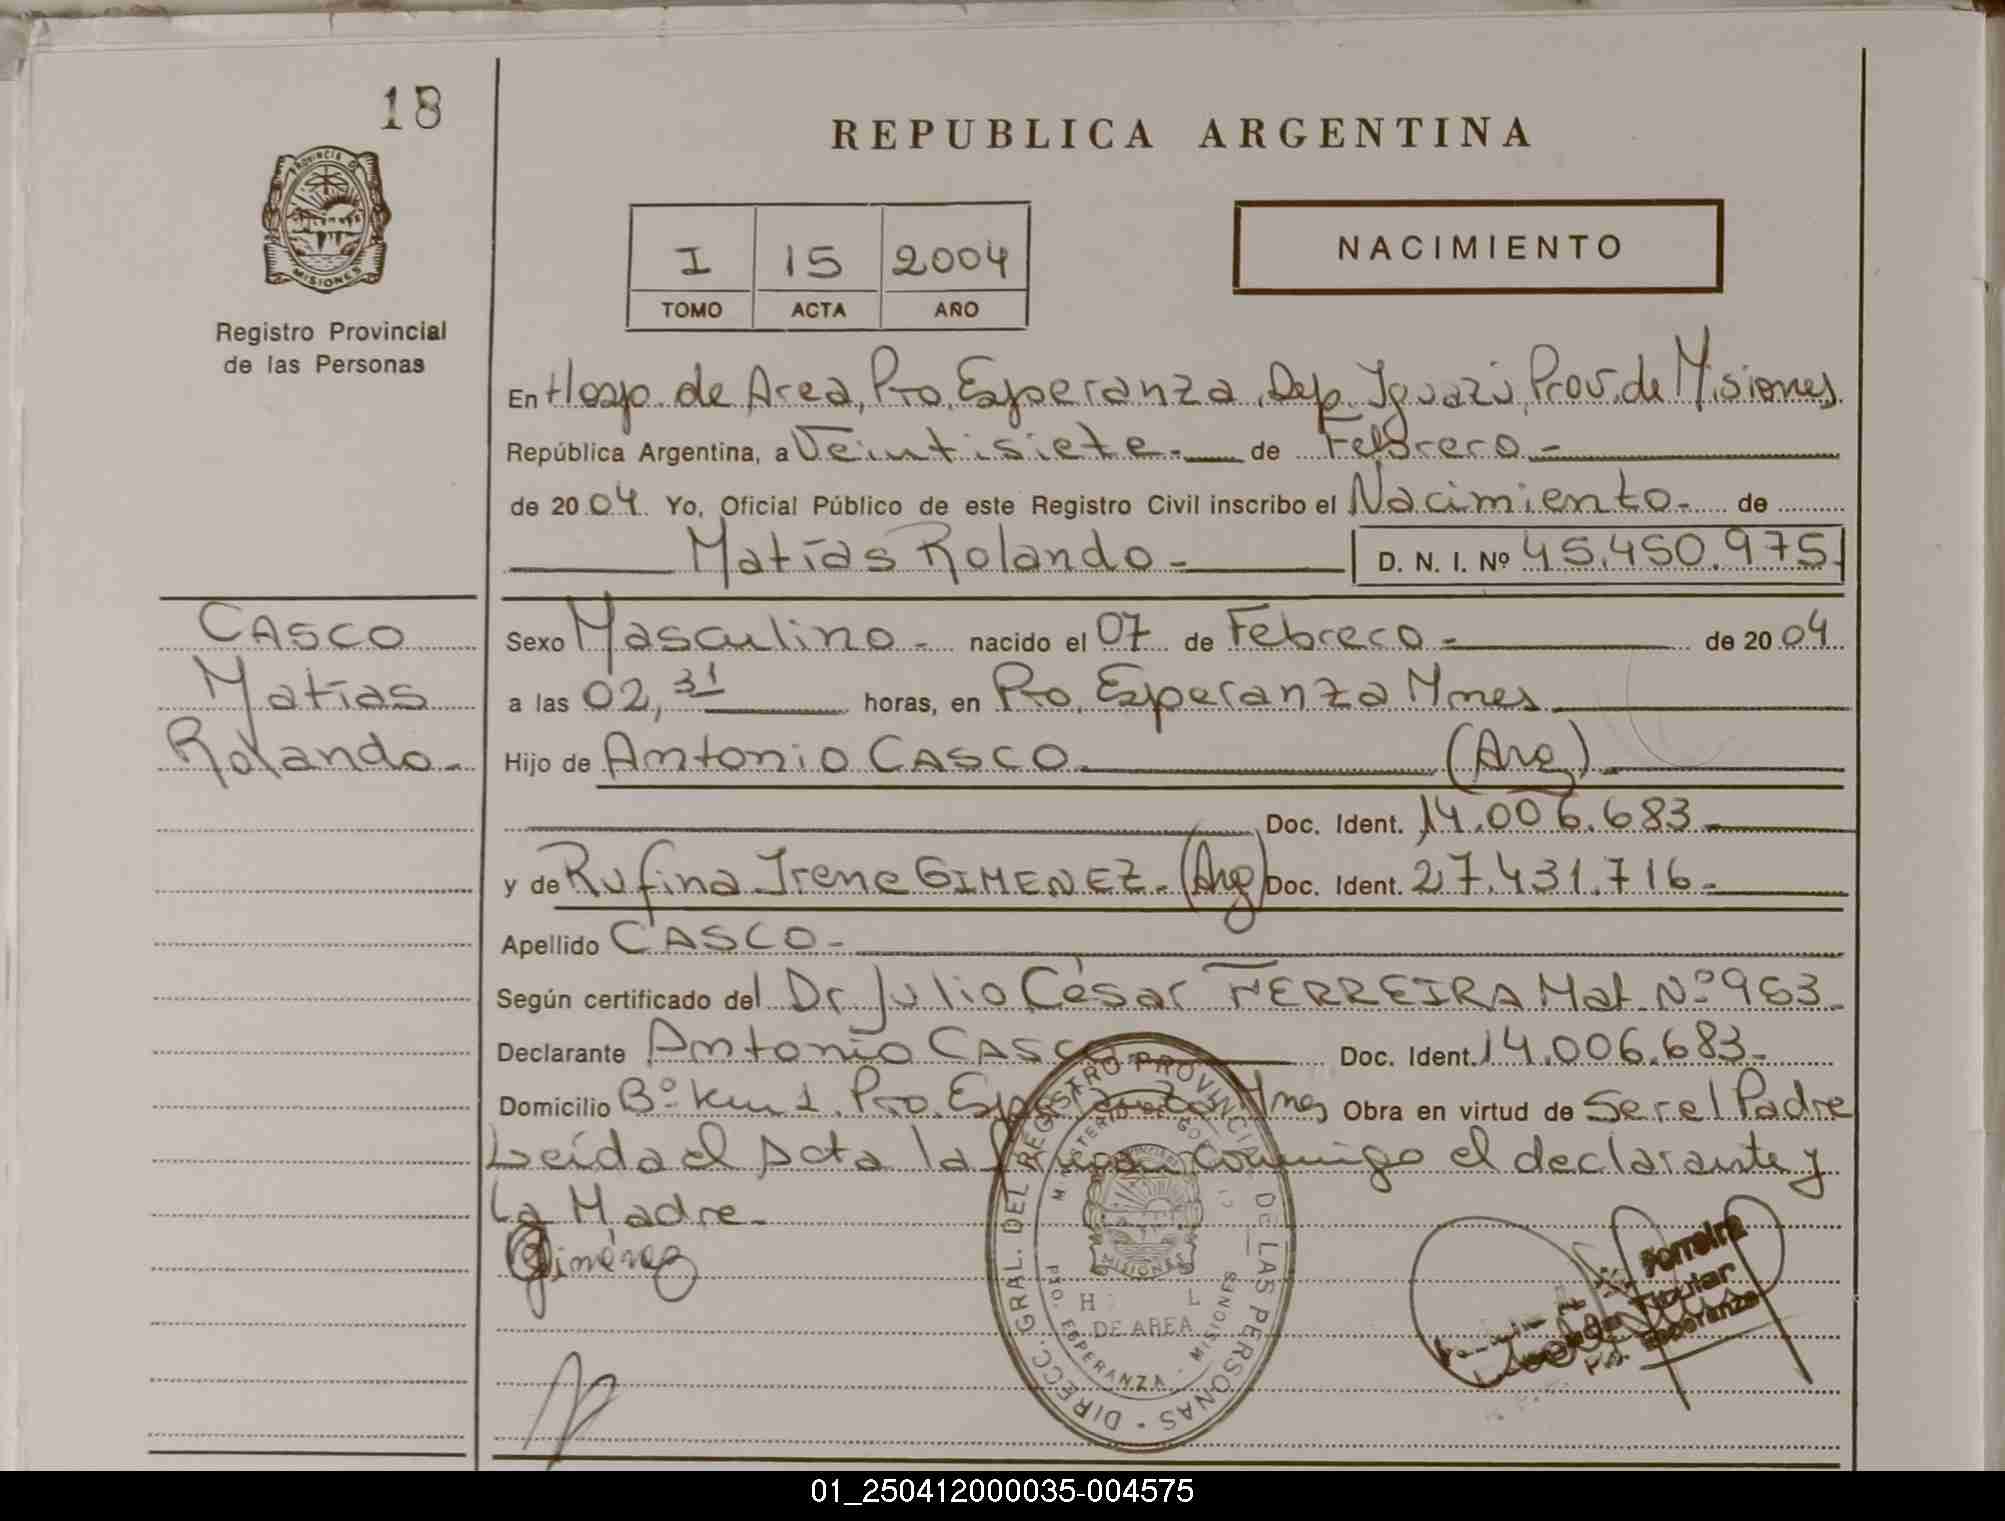 18
PROVINCIA DE
MISIONES
Registro Provincial
de las Personas
REPUBLICA ARGENTINA
I 15 2004
TOMO ACTA AÑO
NACIMIENTO
En Hosp. de Area, Pto. Esperanza, Dep. Iguazú, Prov. de Misiones.
República Argentina, a Veintisiete.- de Febrero.-
de 2004. Yo, Oficial Público de este Registro Civil inscribo el Nacimiento.- de
Matías Rolando.- D. N. I. Nº 45.450.975.
CASCO
Matías
Rolando.-
Sexo Masculino.- nacido el 07 de Febrero.- de 2004
a las 02,31 horas, en Pto. Esperanza Mnes
Hijo de Antonio CASCO. (Arg).
Doc. Ident. 14.006.683.
y de Rufina Irene GIMENEZ.- (Arg) Doc. Ident. 27.431.716.-
Apellido CASCO.-
Según certificado del Dr. Julio César FERREIRA Mat. Nº 963.
Declarante Antonio CASCO Doc. Ident. 14.006.683.-
Domicilio Bº Km 1. Pto. Esperanza Mnes Obra en virtud de Ser el Padre
Leída el Acta la firman conmigo el declarante y
La Madre.-
Giménez
DIRECC. GRAL. DEL REGISTRO PROVINCIAL DE LAS PERSONAS
MINISTERIO DE GOB
MISIONES
DE AREA
PTO. ESPERANZA - MISIONES
Ferreira
Titular
Pto. Esperanza
01_250412000035-004575